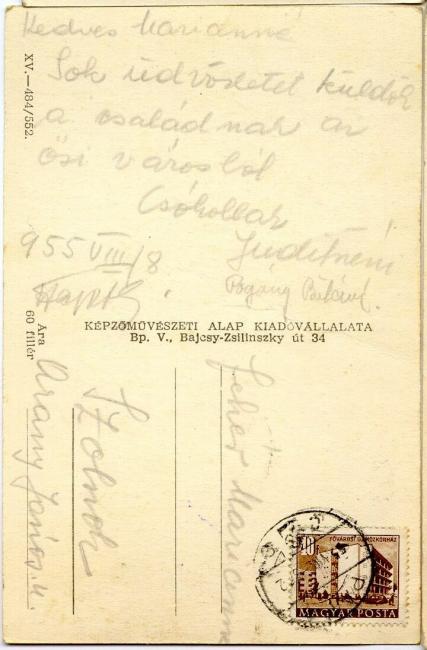 Kedves Marianne
Sok üdvözletet küldök
a családnak az
ősi városból
Csókollak
Juditnéni
955 VIII/8
Pogány
XV.—484/552.
KÉPZŐMŰVÉSZETI ALAP KIADÓVÁLLALATA
Bp. V., Bajcsy-Zsilinszky út 34
Ára
60 fillér
Fehér Marianne
Szolnok
Arany János u.
FŐVÁROSI ÚJ KÓRHÁZ
MAGYAR POSTA